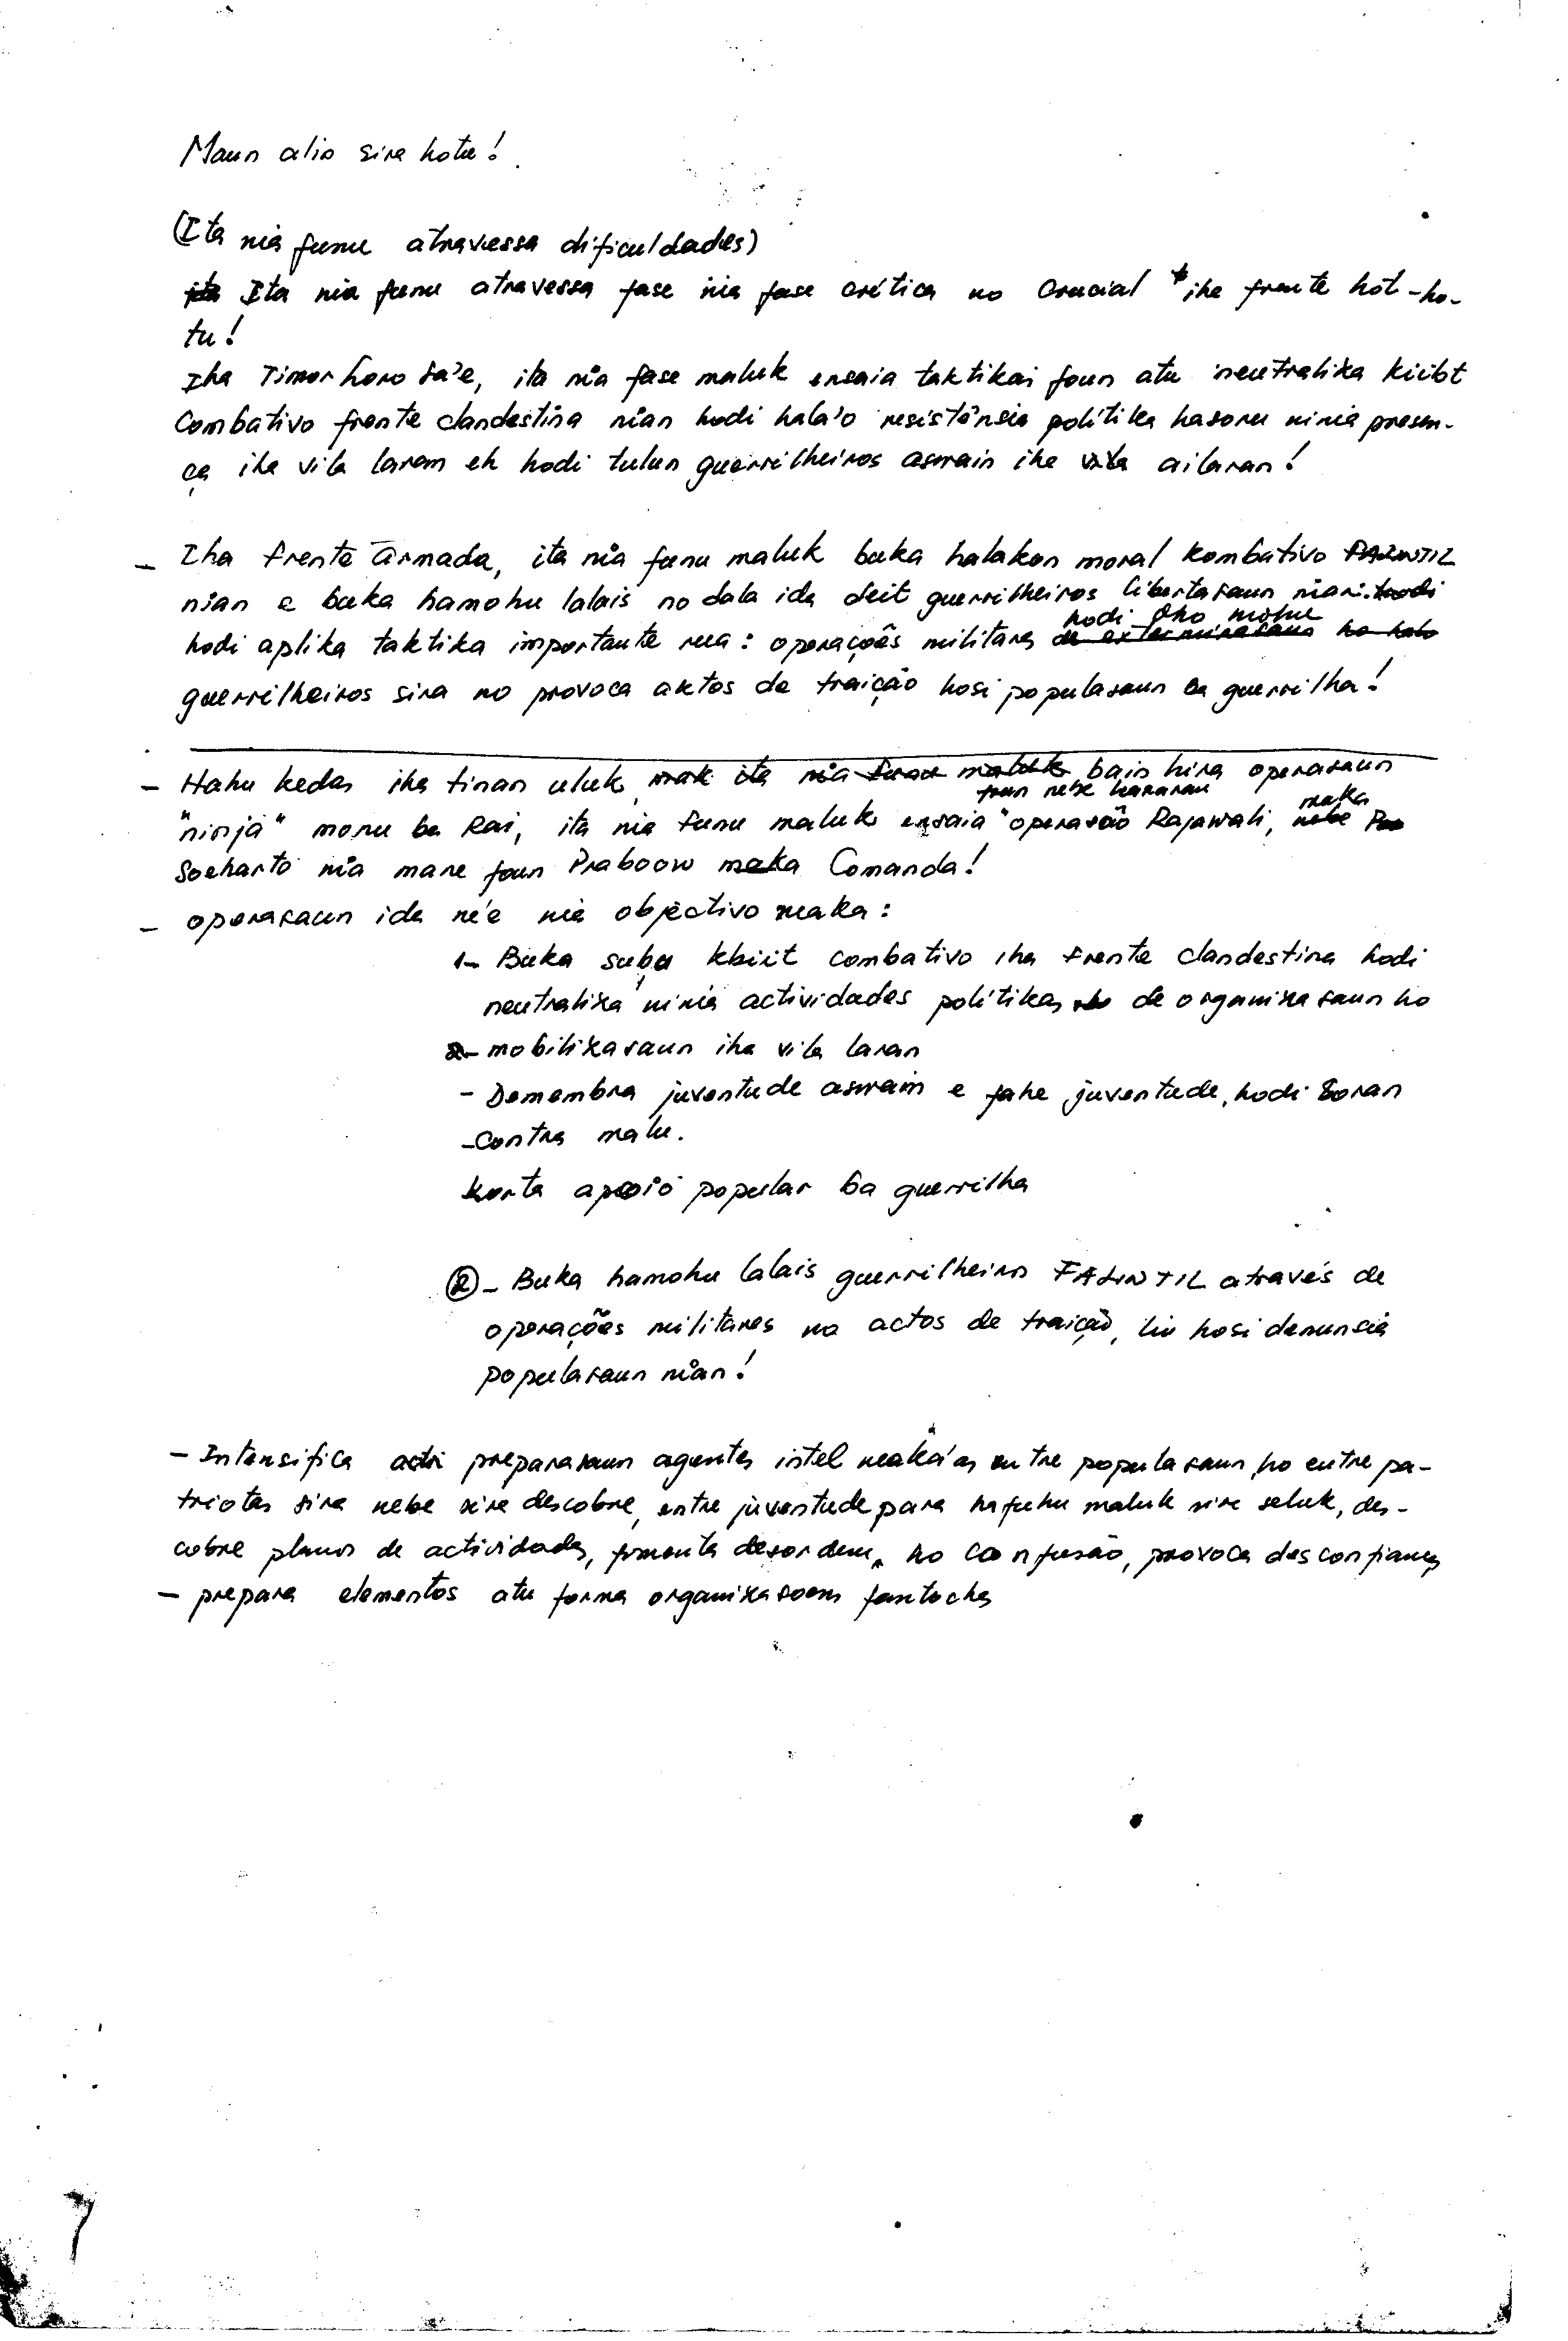 Maun alin sira hotu!
(Ita nia funu atravessa dificuldades)
Ita nia funu atravessa fase nia fase crítica no crucial ihe frente hot-ho-
tu!
Iha Timor Loro Sa'e, ita nia fase maluk ensaia taktikas foun atu neutraliza kiibt
Combativo frente clandestina nian hodi hala'o resistênsia polítika hasoru ninia presen-
ça iha vila laram eh hodi tulun guerrilheiros aswain iha ailaran!
- Iha frente Armada, ita nia funu maluk buka halakon moral kombativo FALINTIL
nian e buka hamohu lalais no dala ida deit guerrilheiros libertasaun nian.
hodi oho mohu
hodi aplika taktika importante rua: operações militares
guerrilheiros sira no provoca aktos de traição hosi populasaun ba guerrilha!
- Hahu kedas iha tinan uluk, bain hira operasaun
foun nebe hanaran
"ninja" monu ba Rai, ita nia funu maluk ensaia "operasão Rajawali, maka
Soeharto nia mane foun Praboow maka Comanda!
- operasaun ida ne'e nia objectivo maka:
1- Buka subu kbiit combativo iha frente clandestina hodi
neutraliza ninia actividades polítikas de organizasaun ho
mobilizasaun iha vila laran
- Demembra juventude aswain e fahe juventude, hodi soran
- contra malu.
Korta apoio popular ba guerrilha
2- Buka hamohu lalais guerrilheiro FALINTIL através de
operações militares no actos de traição, liu hosi denunsia
populasaun nian!
- Intensifica preparasaun agentes intel neaká'as entre populasaun, ho entre pa-
triotas sira nebe sira descobre, entre juventude para hafuhu maluk sira seluk, des-
cobre planos de actividades, fomenta desordem, ho confusão, provoca desconfiança
- prepara elementos atu forma organizasoens fantoches